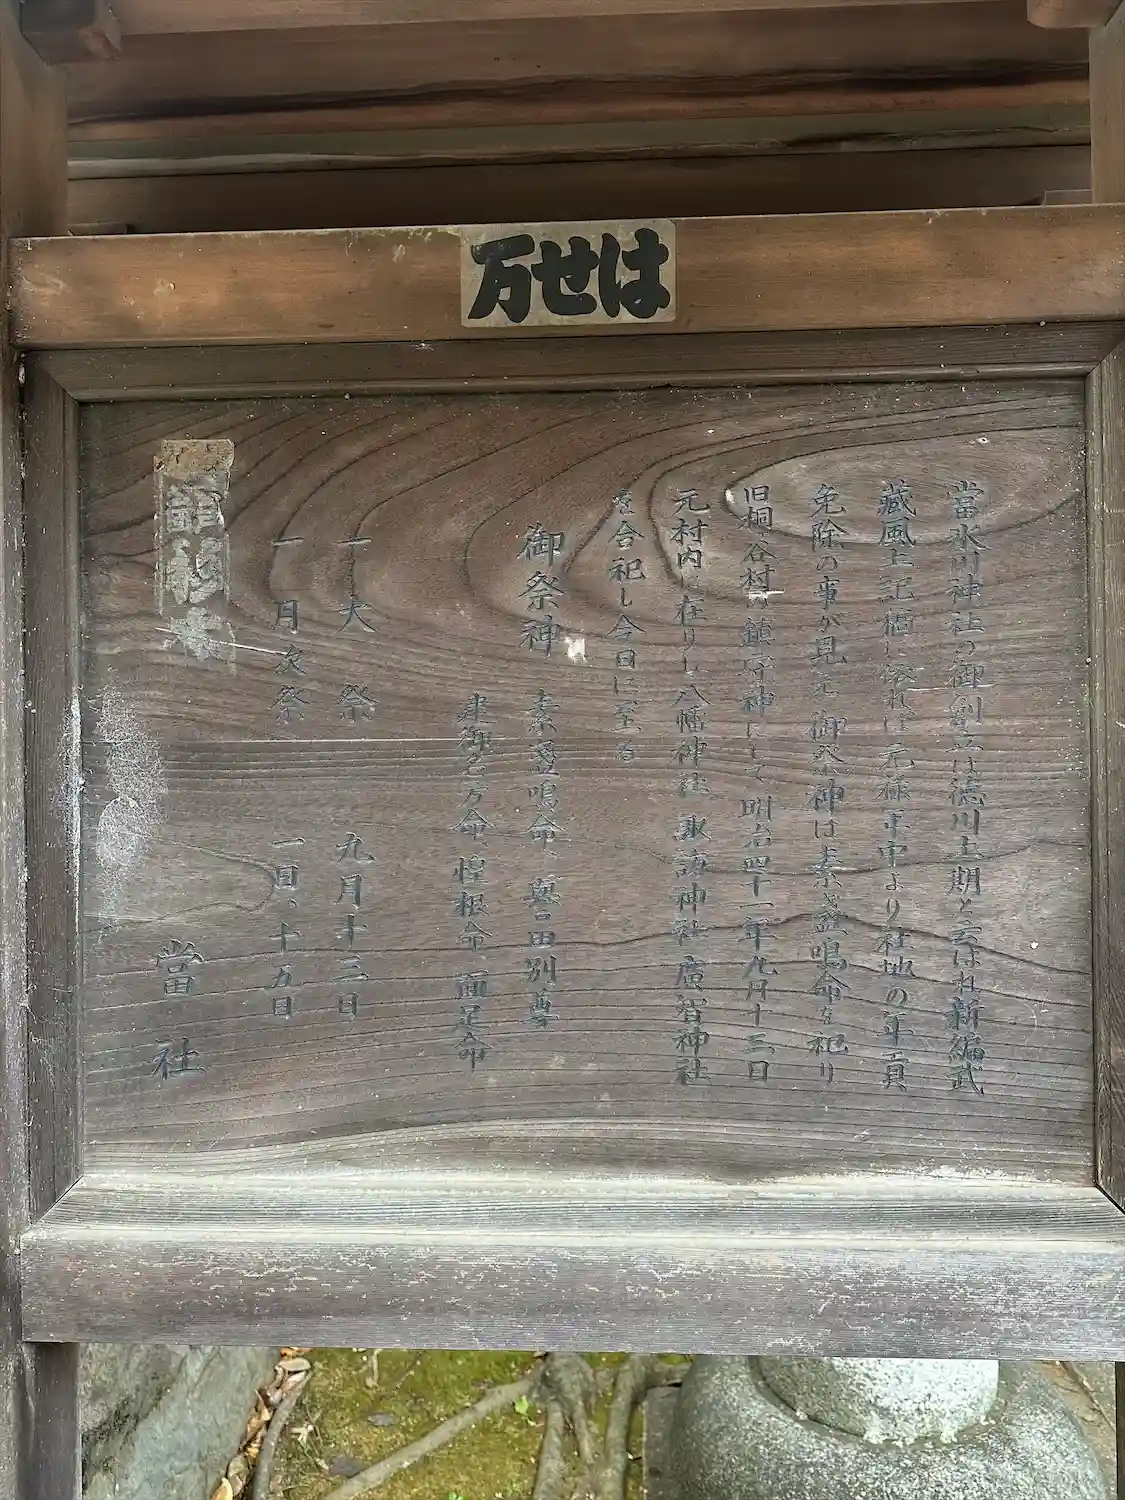 万せは
當氷川神社の御創立は徳川上期と云はれ新編武
藏風土記稿に依れば元禄年中より社地の年貢
免除の事が見え御祭神は素盞嗚命を祀り
旧桐ヶ谷村の鎮守神にして明治四十一年九月十三日
元村内に在りし八幡神社諏訪神社廣智神社
を合祀し今日に至る
御祭神 素盞嗚命、譽田別尊
建御名方命、惶根命、面足命
一、大祭 九月十三日
一、月次祭 一日、十五日
當社